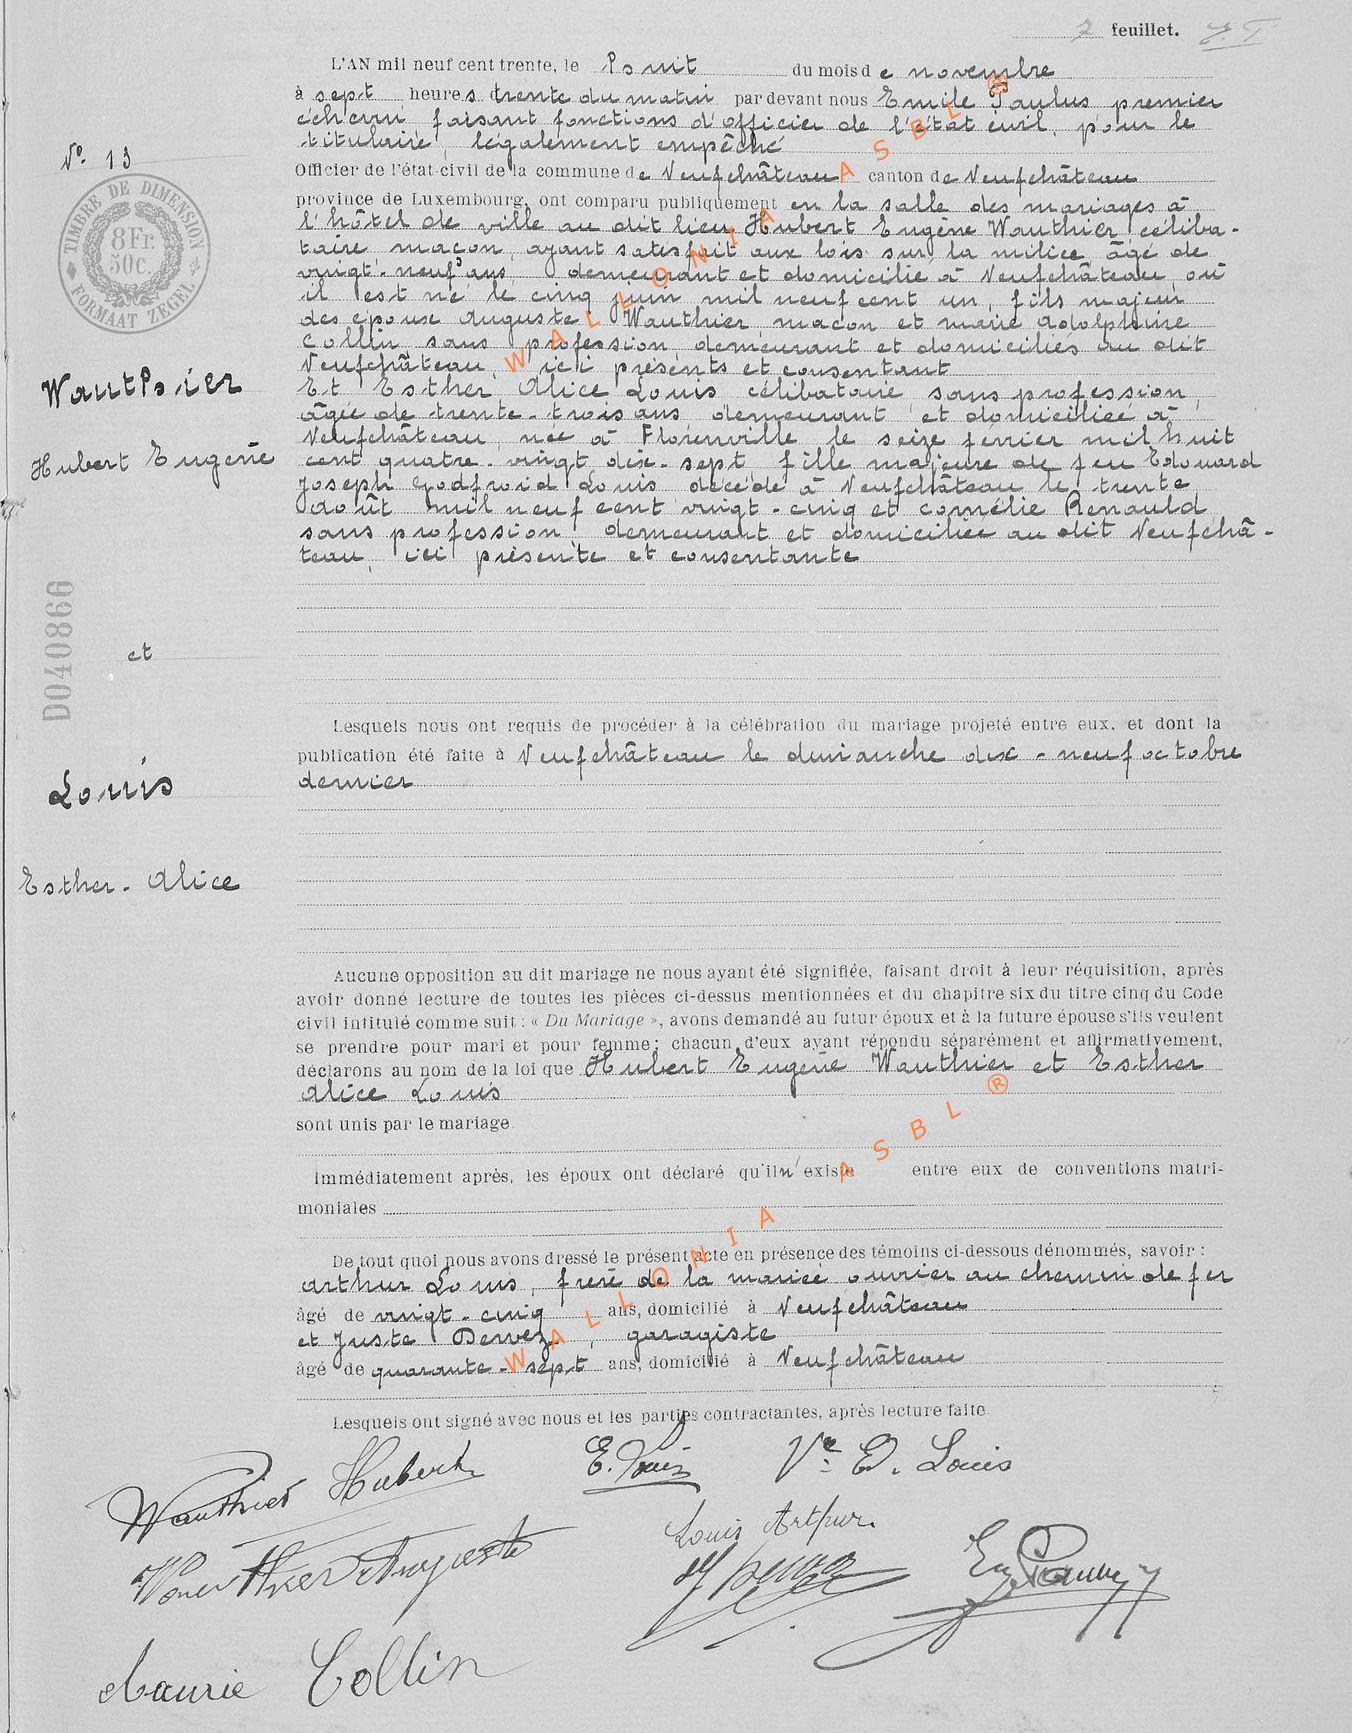 7 feuillet.
L'AN mil neuf cent trente, le huit du mois de novembre
à sept heures trente du matin par devant nous Emile Paulus premier
échevin faisant fonctions d'officier de l'état civil, pour le
titulaire, légalement empêché
N° 13
Officier de l'état-civil de la commune de Neufchâteau canton de Neufchâteau
province de Luxembourg, ont comparu publiquement en la salle des mariages à
l'hôtel de ville au dit lieu Hubert Eugène Wauthier céliba-
taire maçon, ayant satisfait aux lois sur la milice âgé de
vingt-neuf ans demeurant et domicilié à Neufchâteau où
il est né le cinq juin mil neuf cent un, fils majeur
des époux Auguste Wauthier maçon et marie adolphine
Collin sans profession demeurant et domiciliés au dit
Neufchâteau, ici présents et consentant
Et Esther Alice Louis célibataire sans profession,
âgée de trente-trois ans demeurant et domiciliée à
Neufchâteau, née à Florenville le seize février mil huit
cent quatre-vingt dix-sept fille majeure de feu Edouard
Joseph Godfroid Louis décédé à Neufchâteau le trente
août mil neuf cent vingt-cinq et cornélie Renauld
sans profession demeurant et domiciliée au dit Neufchâ-
teau, ici présente et consentante
Wauthier
Hubert Eugène
et
Louis
Esther-Alice
TIMBRE DE DIMENSION
8Fr.
50c.
FORMAAT ZEGEL
D040866
Lesquels nous ont requis de procéder à la célébration du mariage projeté entre eux, et dont la
publication été faite à Neufchâteau le dimanche dix-neuf octobre
dernier
Aucune opposition au dit mariage ne nous ayant été signifiée, faisant droit à leur réquisition, après
avoir donné lecture de toutes les pièces ci-dessus mentionnées et du chapitre six du titre cinq du Code
civil intitulé comme suit : « Du Mariage », avons demandé au futur époux et à la future épouse s'ils veulent
se prendre pour mari et pour femme ; chacun d'eux ayant répondu séparément et affirmativement,
déclarons au nom de la loi que Hubert Eugène Wauthier et Esther
Alice Louis
sont unis par le mariage.
Immédiatement après, les époux ont déclaré qu'il n'existe entre eux de conventions matri-
moniales
De tout quoi nous avons dressé le présent acte en présence des témoins ci-dessous dénommés, savoir :
arthur Louis, frère de la mariée ouvrier au chemin de fer
âgé de vingt-cinq ans, domicilié à Neufchâteau
et Juste Dervez, garagiste
âgé de quarante-sept ans, domicilié à Neufchâteau
Lesquels ont signé avec nous et les parties contractantes, après lecture faite.
Wauthier Hubert E. Louis Ve E. Louis
Wauthier Auguste Louis Arthur
Em Paulus
Marie Collin
WALLONIA ASBL ®
WALLONIA ASBL ®